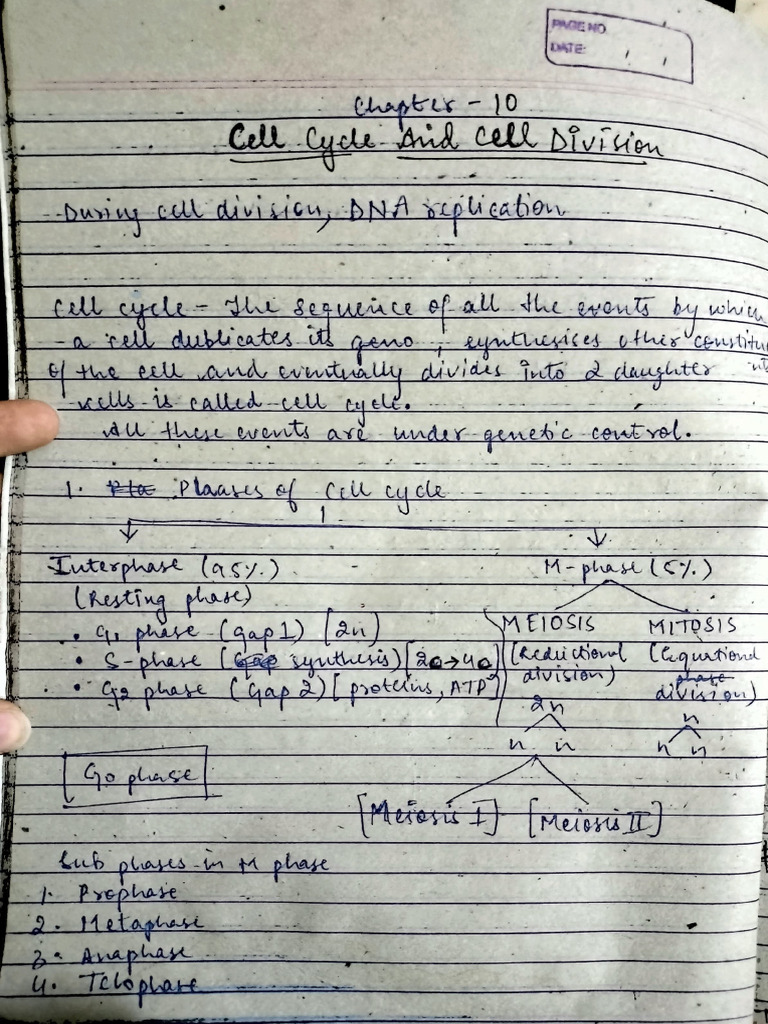 PAGE NO
DATE: / /
Chapter - 10
Cell Cycle And Cell Division
During cell division, DNA replication
Cell cycle - The sequence of all the events by which
a cell dublicates its geno, synthesises other constitu
of the cell and eventually divides into 2 daughter nts
cells is called cell cycle.
All these events are under genetic control.
1. Phaases of Cell cycle
Interphase (95%.)
(Resting phase)
• G1 phase (Gap 1) [2n]
• S-phase (synthesis) [2c→4c]
• G2 phase (Gap 2) [proteins, ATP]
M-phase (5%.)
MEIOSIS
(Reductional
division)
2n
n n
[Meiosis I] [Meiosis II]
MITOSIS
(Equational
phase
division)
n
n n
G0 phase
Sub phases in M phase
1. Prophase
2. Metaphase
3. Anaphase
4. Telophase